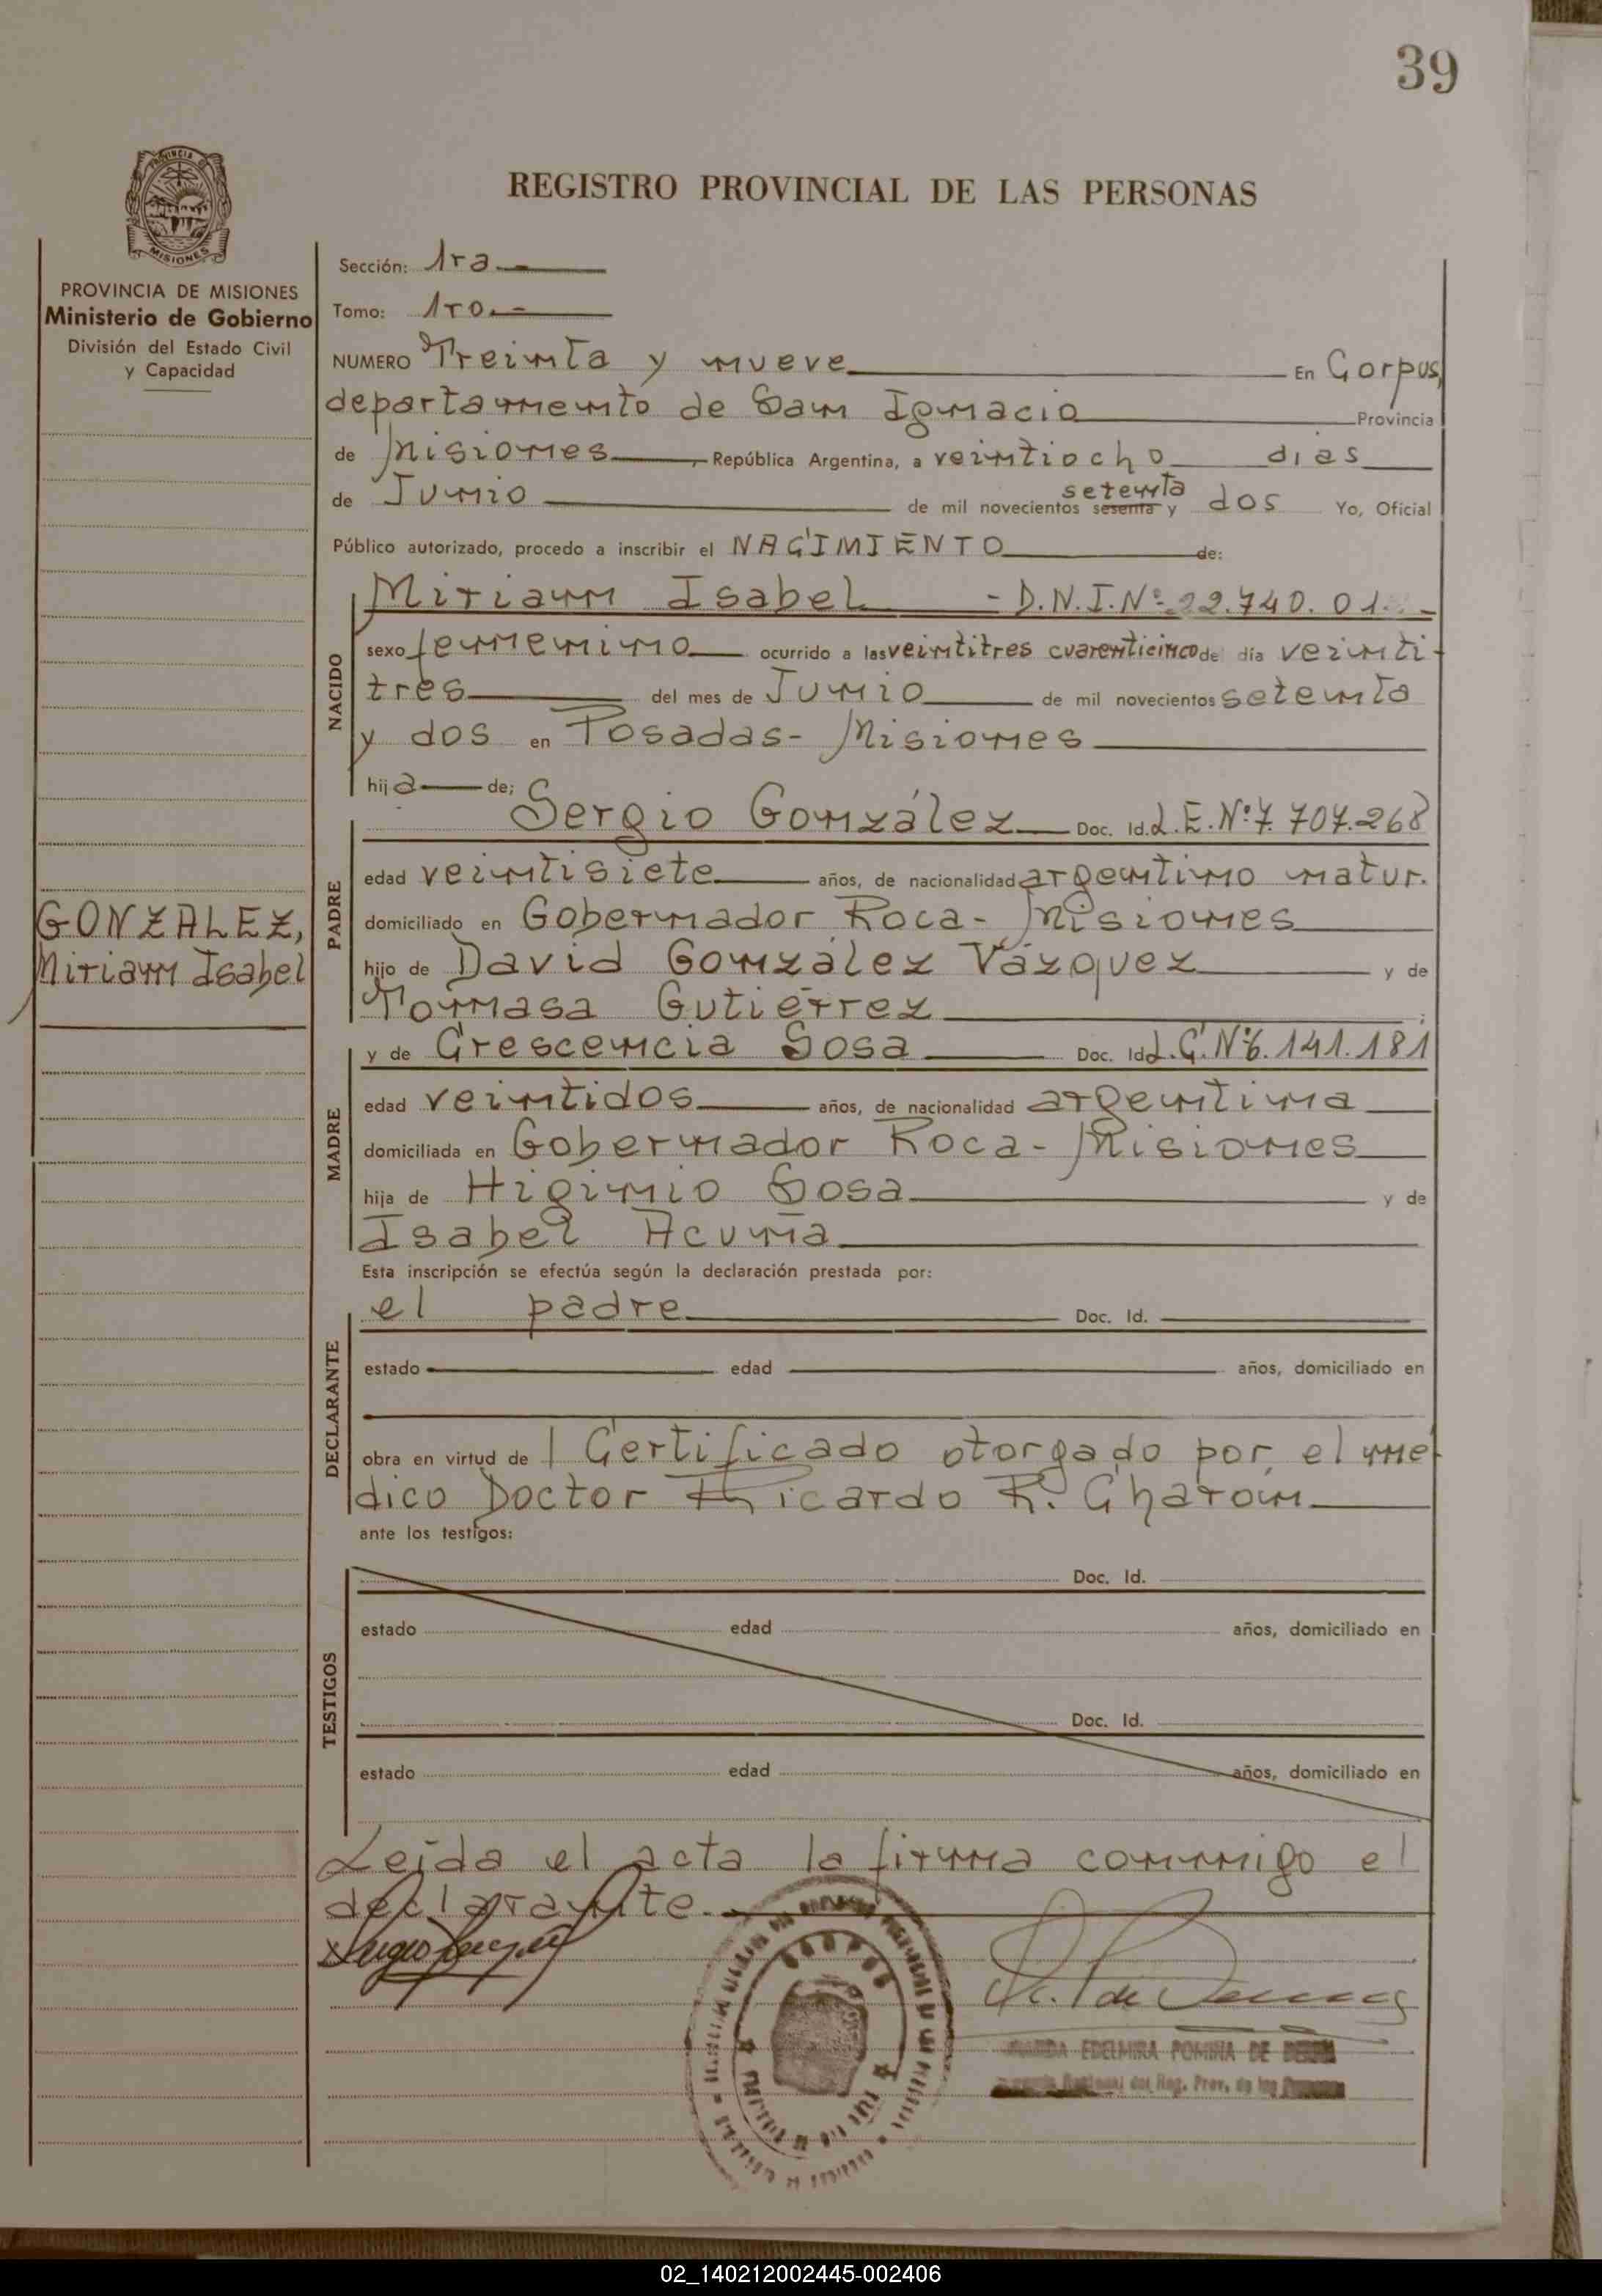 39
PROVINCIA DE MISIONES
REGISTRO PROVINCIAL DE LAS PERSONAS
PROVINCIA DE MISIONES
Ministerio de Gobierno
División del Estado Civil
y Capacidad
GONZALEZ,
Miriam Isabel
Sección: 1ra.-
Tomo: 1ro.-
NUMERO Treinta y nueve En Corpus,
departamento de San Ignacio Provincia
de Misiones, República Argentina, a veintiocho dias
setenta
de Junio de mil novecientos sesenta y dos Yo, Oficial
Público autorizado, procedo a inscribir el NACIMIENTO de:
NACIDO
Miriam Isabel - D.N.I.Nº 22.740.01
sexo femenino ocurrido a las veintitres cuarenticinco del día veinti-
tres del mes de Junio de mil novecientos setenta
y dos en Posadas- Misiones
hija de;
PADRE
Sergio González Doc. Id. L.E.Nº7.707.268
edad veintisiete años, de nacionalidad argentino natur.
domiciliado en Gobernador Roca- Misiones
hijo de David González Vázquez y de
Tomasa Gutiérrez ;
MADRE
y de Crescencia Sosa Doc. Id. L.C.Nº6.141.181
edad veintidos años, de nacionalidad argentina
domiciliada en Gobernador Roca- Misiones
hija de Higinio Sosa y de
Isabel Acuña
Esta inscripción se efectúa según la declaración prestada por:
DECLARANTE
el padre Doc. Id.
estado edad años, domiciliado en
obra en virtud de 1 Certificado otorgado por el mé
dico Doctor Ricardo R. Charon
ante los testigos:
TESTIGOS
Doc. Id.
estado edad años, domiciliado en
Doc. Id.
estado edad años, domiciliado en
Leida el acta la firma conmigo el
declarante.-
EDELMIRA POMINA DE
Reg. Prov. de las
02_140212002445-002406